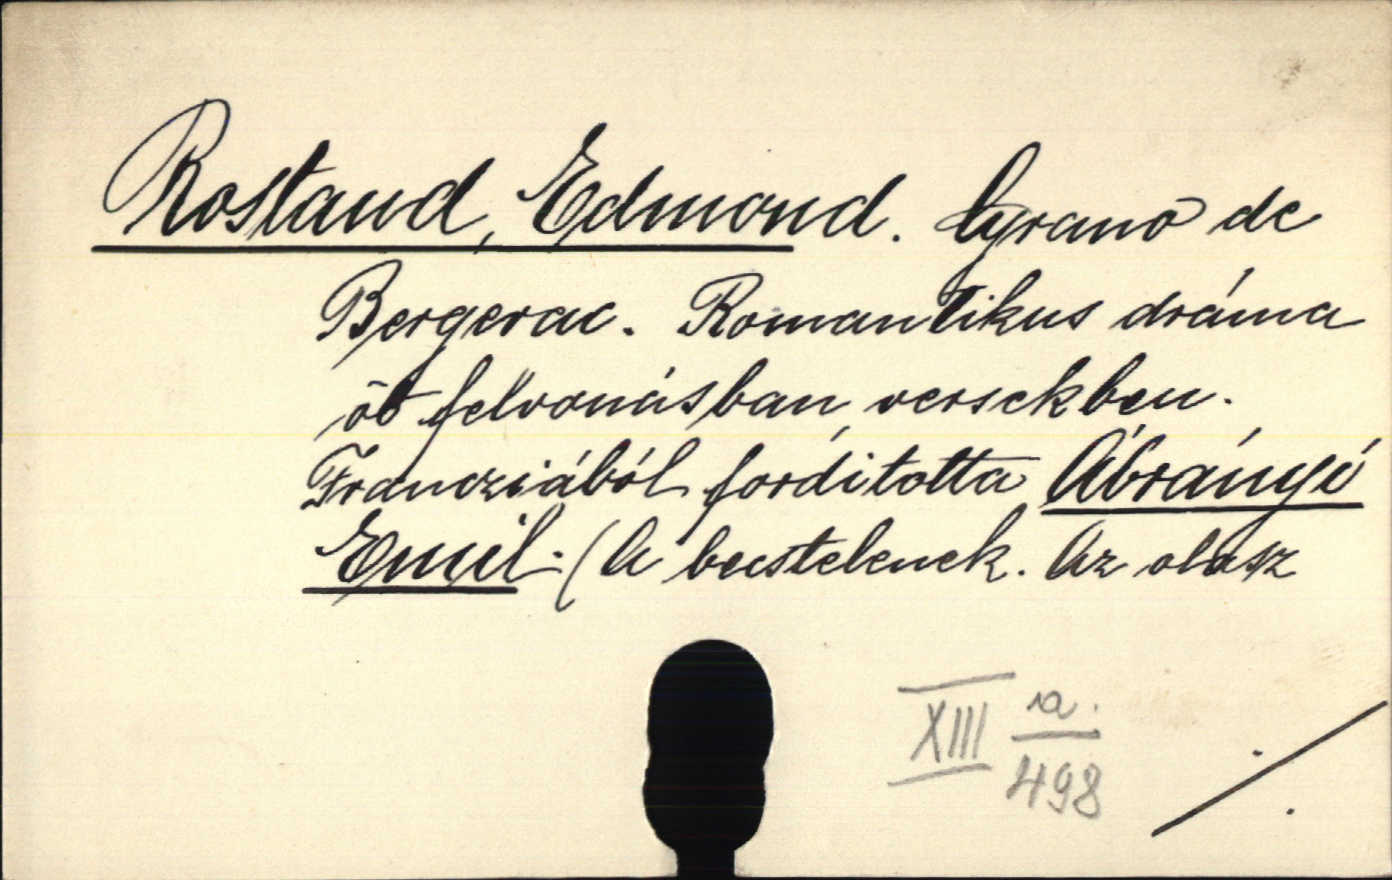 Rostand, Edmond. Cyrano de
Bergerac. Romantikus dráma
öt felvonásban, versekben.
Francziából forditotta Ábrányi
Emil. (A becstelenek. Az olasz
XIII a.
498